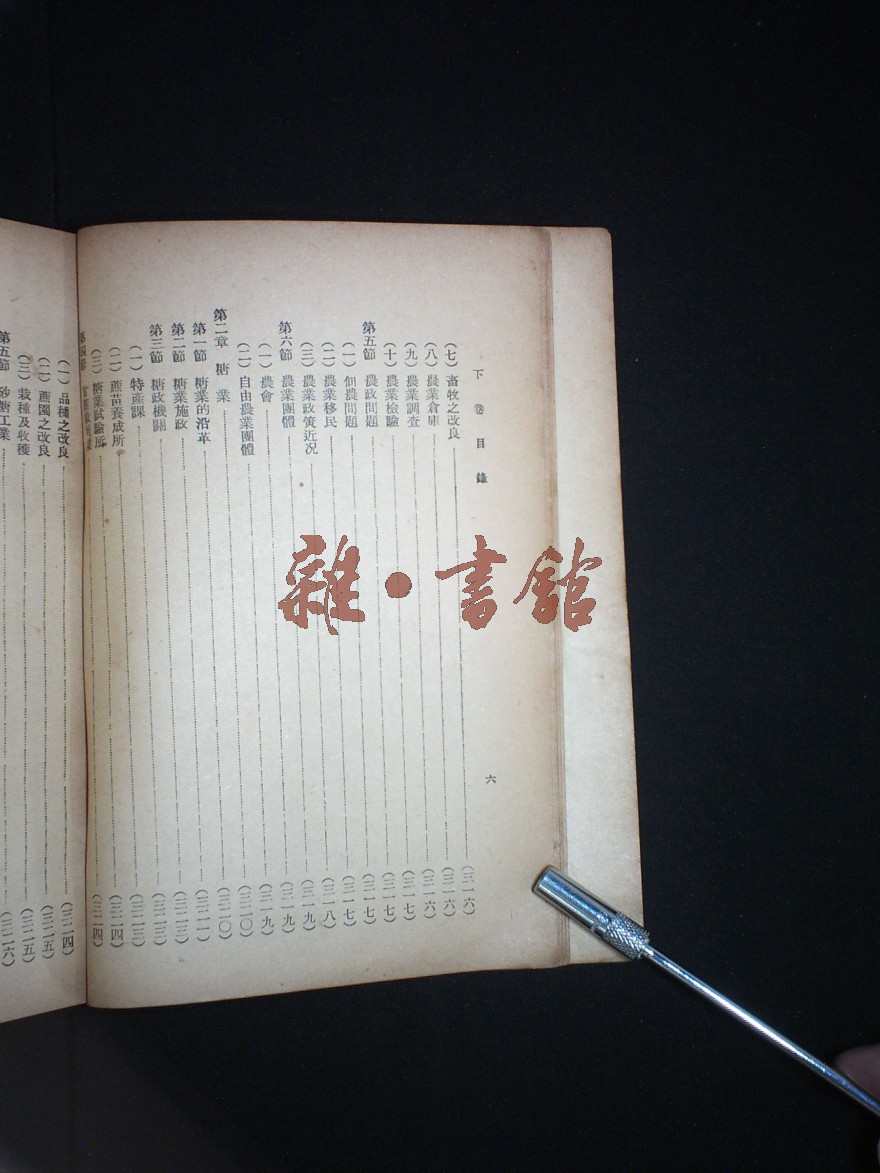 下卷目錄 六
(七)畜牧之改良……(三一六)
(八)農業倉庫……(三一六)
(九)農業調查……(三一六)
(十)農業檢驗……(三一七)
第五節 農政問題……(三一七)
(一)佃農問題……(三一七)
(二)農業移民……(三一七)
(三)農業政策近況……(三一八)
第六節 農業團體……(三一九)
(一)農會……(三一九)
(二)自由農業團體……(三一九)
第二章 糖業……(三二〇)
第一節 糖業的沿革……(三二〇)
第二節 糖業施政……(三二一)
第三節 糖政機關……(三二三)
(一)特產課……(三二三)
(二)蔗苗養成所……(三二三)
(三)糖業試驗所……(三二四)
第四節……(三二四)
(一)品種之改良……(三二四)
(二)蔗園之改良……(三二五)
(三)栽種及收穫……(三二五)
第五節 砂糖工業……(三二六)
雜·書館